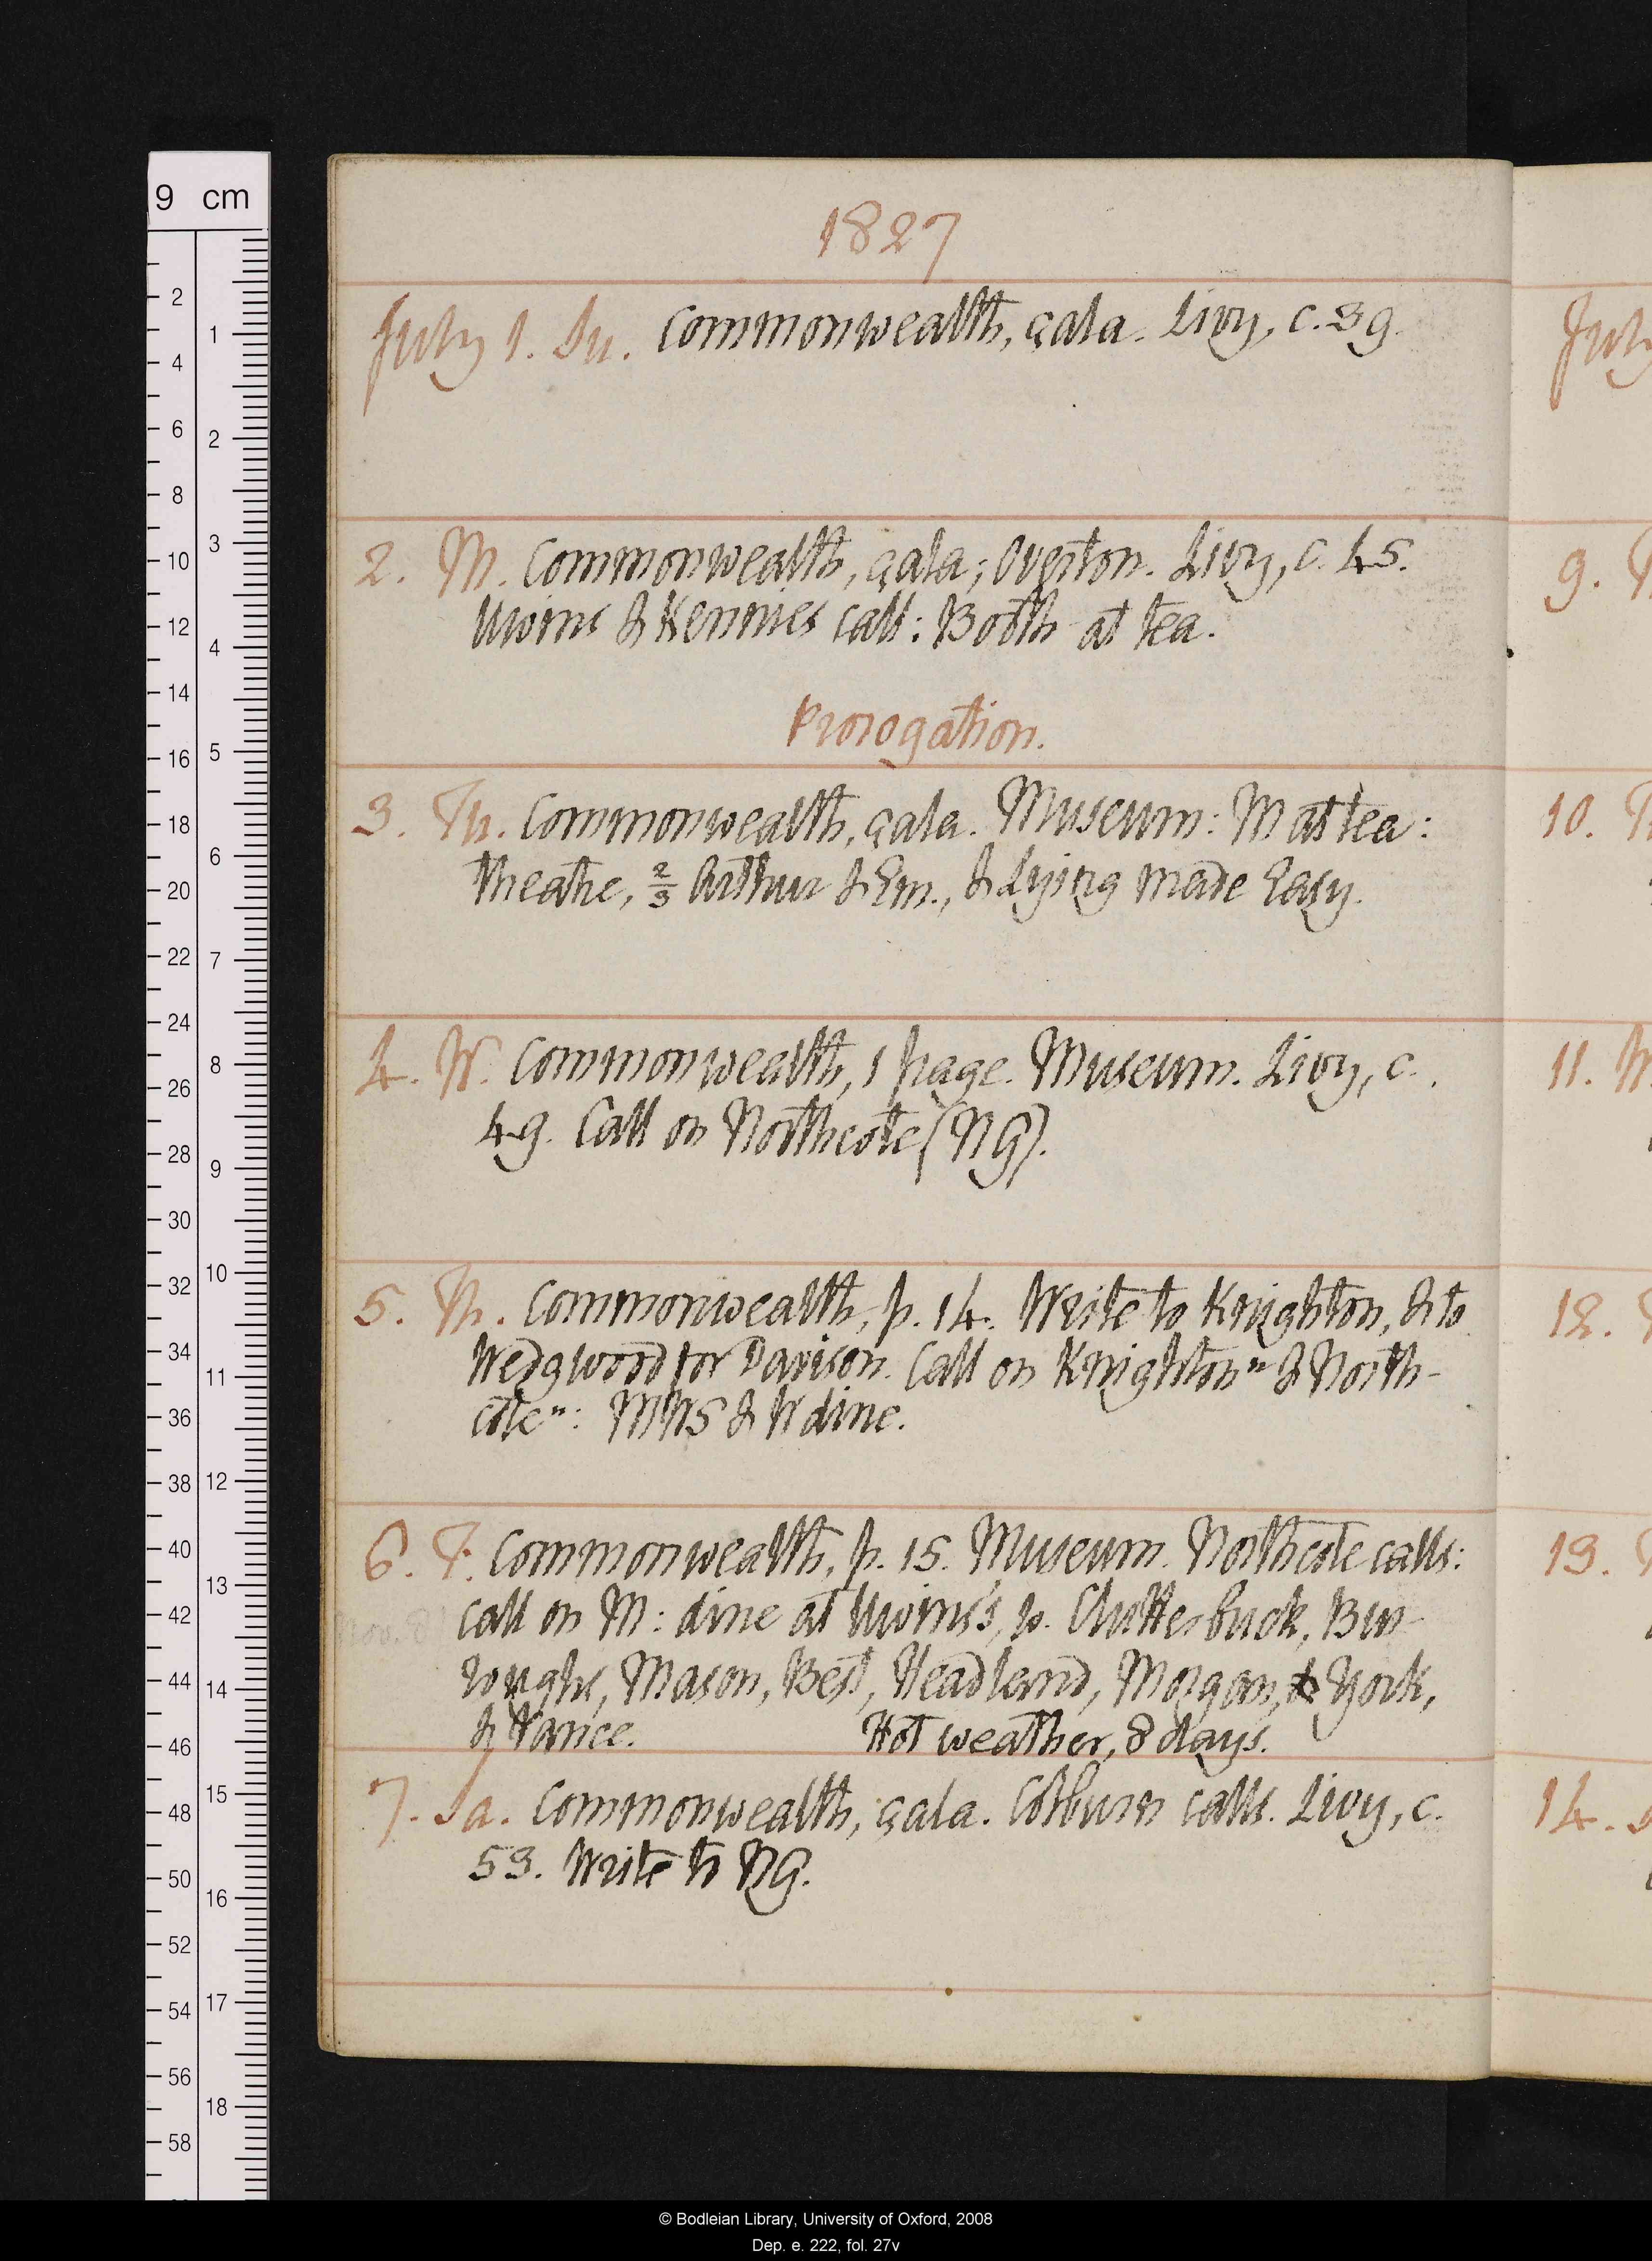 9 cm
1827
July 1. Su. Commonwealth, çala. Livy, c. 39.
2. M. Commonwealth, çala; Overton. Livy, c. 45.
Uwins & Kennies call: Booth at tea.
Prorogation.
3. Tu. Commonwealth, çala. Museum: M at tea:
theatre, 2/3 Arthur & Em., & Lying made Easy.
4. W. Commonwealth, 1 page. Museum. Livy, c.
49. Call on Northcote (NG).
5. Th. Commonwealth, p. 14. Write to Knighton, & to
Wedgwood for Davison. Call on Knighton n & North-
cote n: MWS & W dine.
6. F. Commonwealth, p. 15. Museum. Northcote calls:
call on M: dine at Uwins's, w. Clutterbuck, Bur-
roughs, Mason, Best, Headlernd, Morgan, & York,
& Vance. Hot weather, 8 days.
7. Sa. Commonwealth, çala. Colburn calls. Livy, c.
53. Write to NG.
July
9.
10.
11.
12.
13.
14.
© Bodleian Library, University of Oxford, 2008
Dep. e. 222, fol. 27v